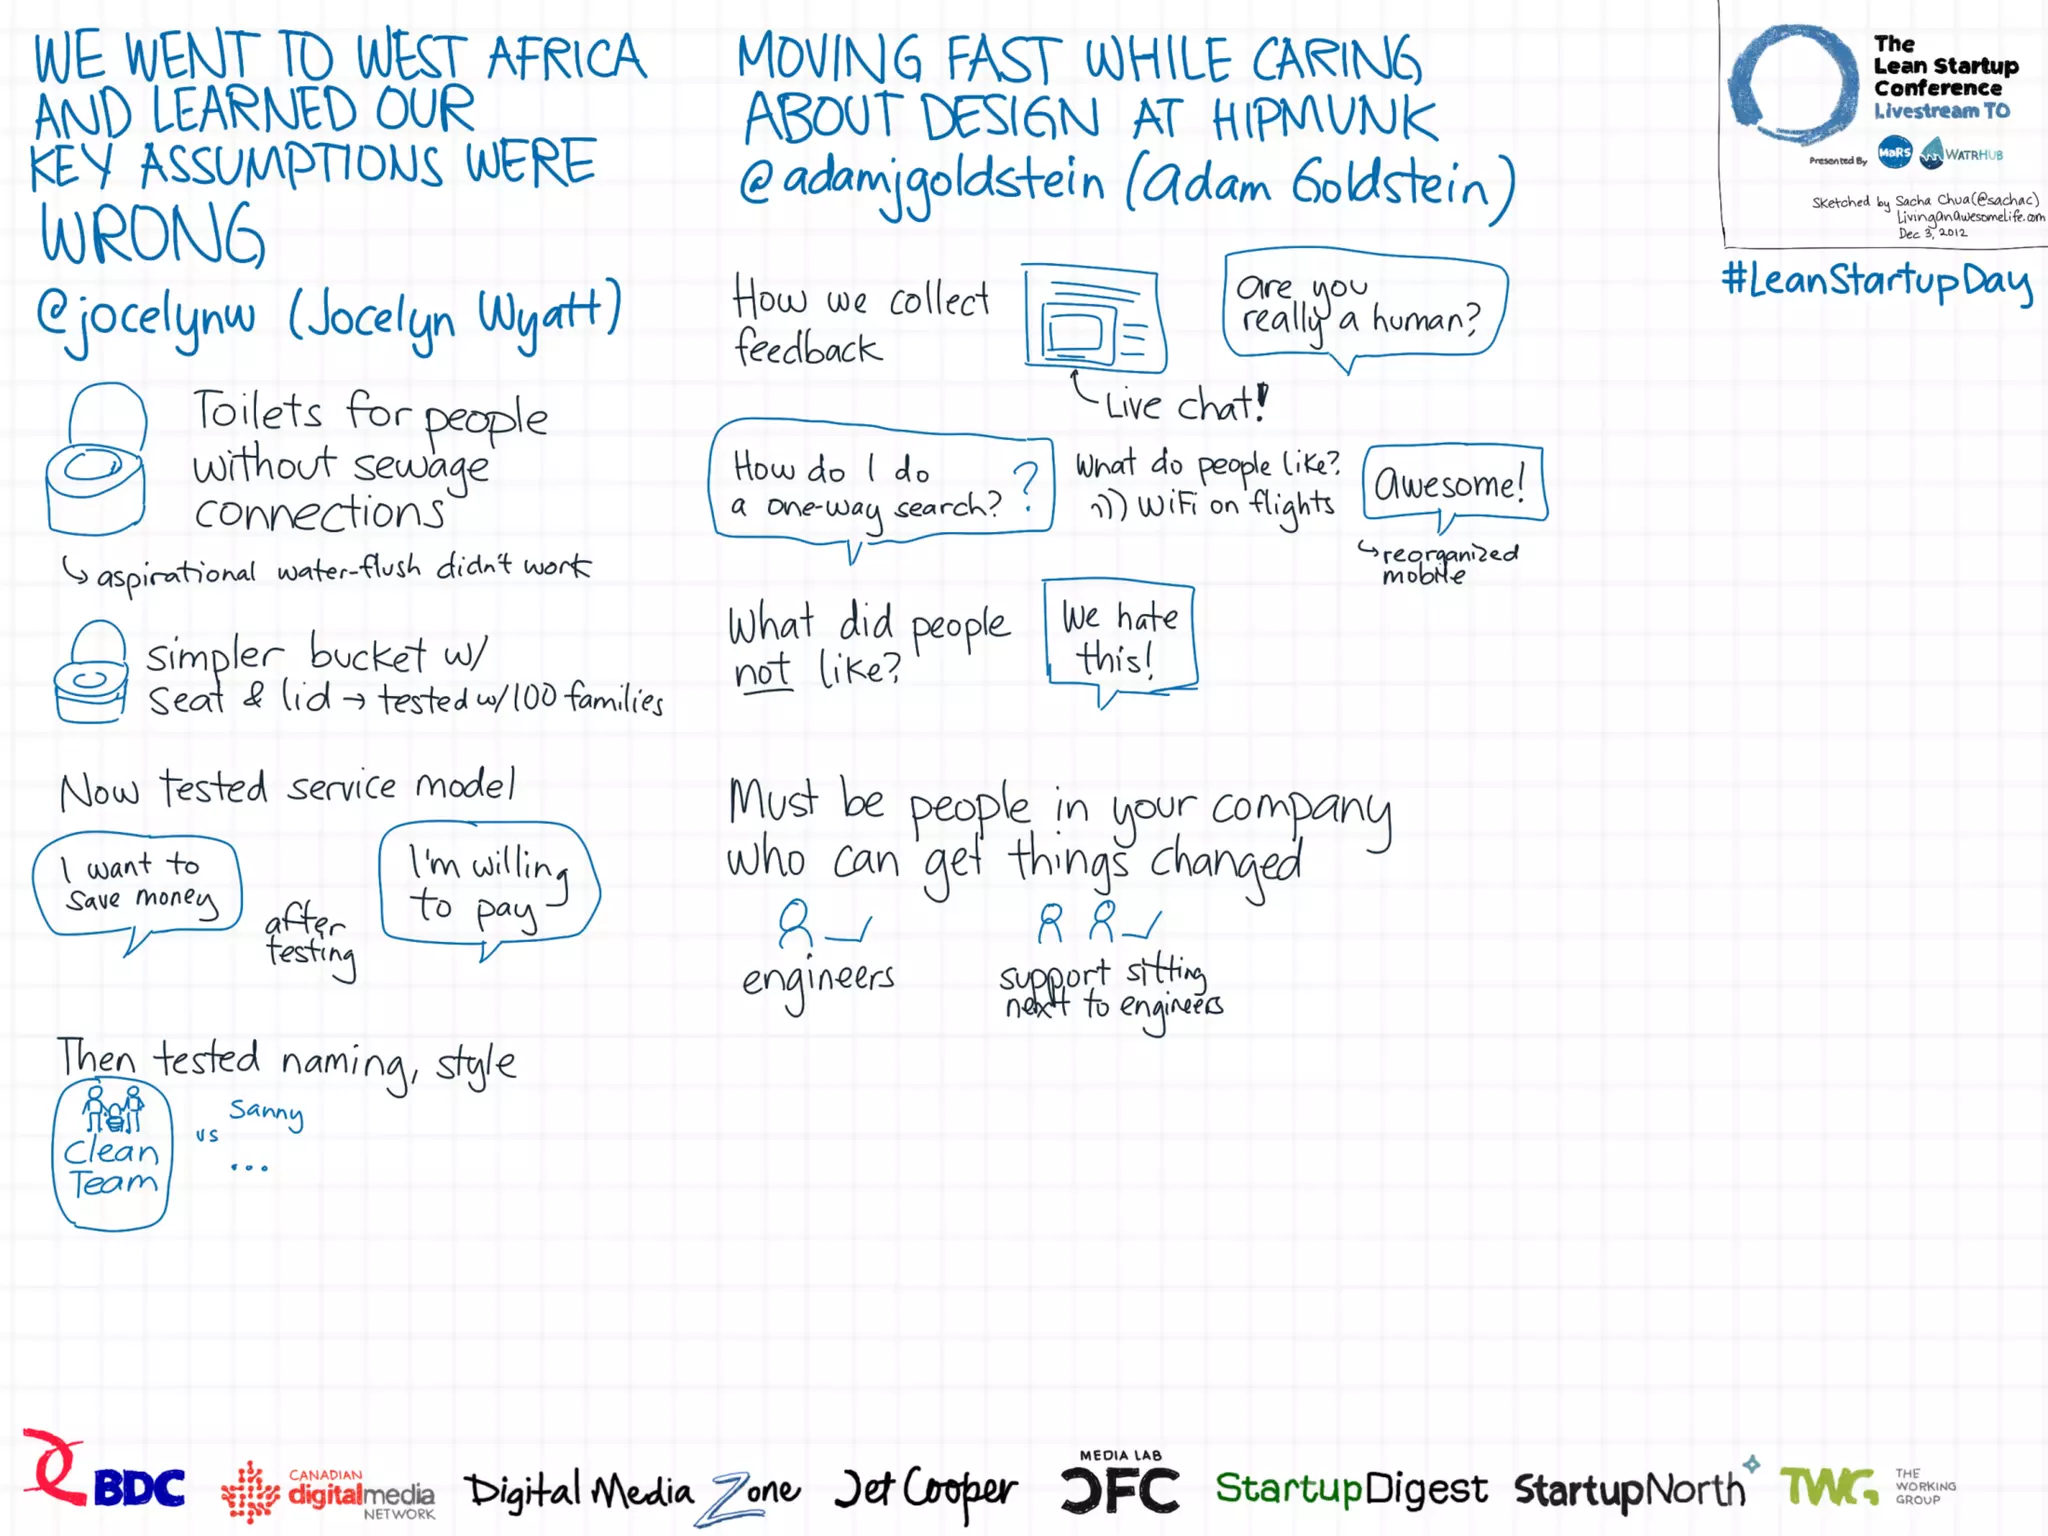 WE WENT TO WEST AFRICA
AND LEARNED OUR
KEY ASSUMPTIONS WERE
WRONG
@jocelynw (Jocelyn Wyatt)
Toilets for people
without sewage
connections
↳ aspirational water-flush didn't work
simpler bucket w/
seat & lid → tested w/100 families
Now tested service model
I want to
save money
after
testing
I'm willing
to pay
Then tested naming, style
Clean
Team
vs
Sanny
...
MOVING FAST WHILE CARING
ABOUT DESIGN AT HIPMUNK
@adamjgoldstein (Adam Goldstein)
How we collect
feedback
Live chat!
are you
really a human?
How do I do
a one-way search?
?
What do people like?
WiFi on flights
Awesome!
↳ reorganized
mobile
What did people
not like?
We hate
this!
Must be people in your company
who can get things changed
engineers
support sitting
next to engineers
The
Lean Startup
Conference
Livestream TO
Presented By
MaRS
WATRHUB
Sketched by Sacha Chua (@sachac)
LivingAnAwesomeLife.com
Dec 3, 2012
#LeanStartupDay
BDC
CANADIAN
digitalmedia
NETWORK
Digital Media Zone
Jet Cooper
MEDIA LAB
CFC
StartupDigest
StartupNorth
TWG
THE
WORKING
GROUP